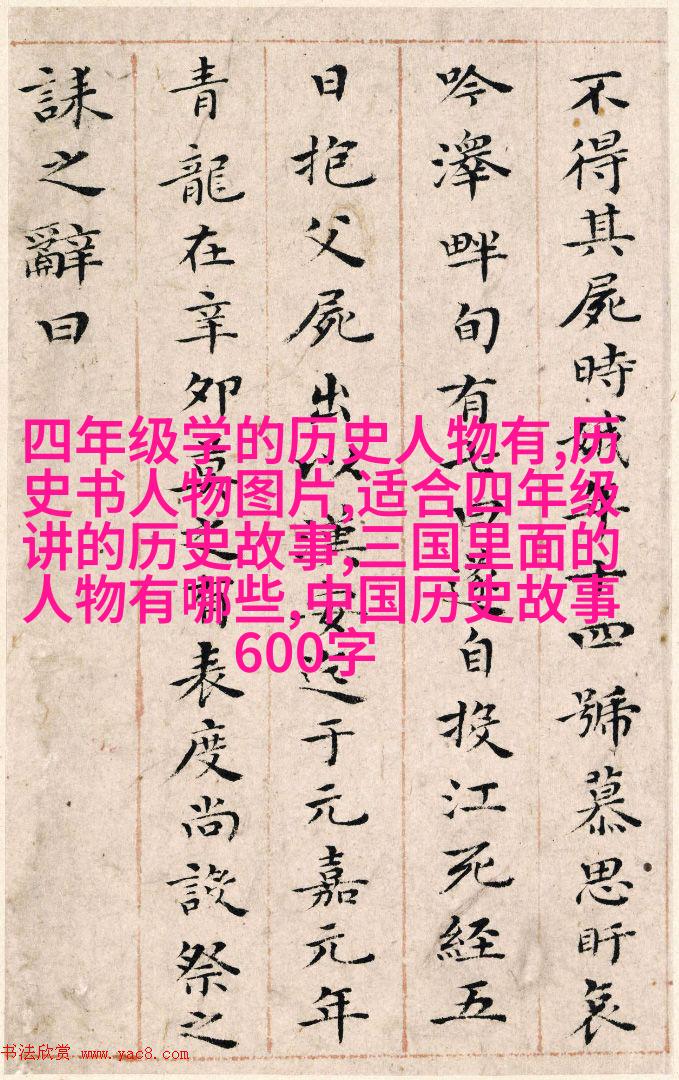 不得其屍時娥年十四號慕思盱哀
吟澤畔旬有七日遂自投江死經五
日抱父屍出以漢安迄于元嘉元年
青龍在辛卯莫之有表度尚設祭之
誄之辭曰
四年级学的历史人物有,历
史书人物图片,适合四年级
讲的历史故事,三国里面的
人物有哪些,中国历史故事
600字
书法欣赏 www.yac8.com